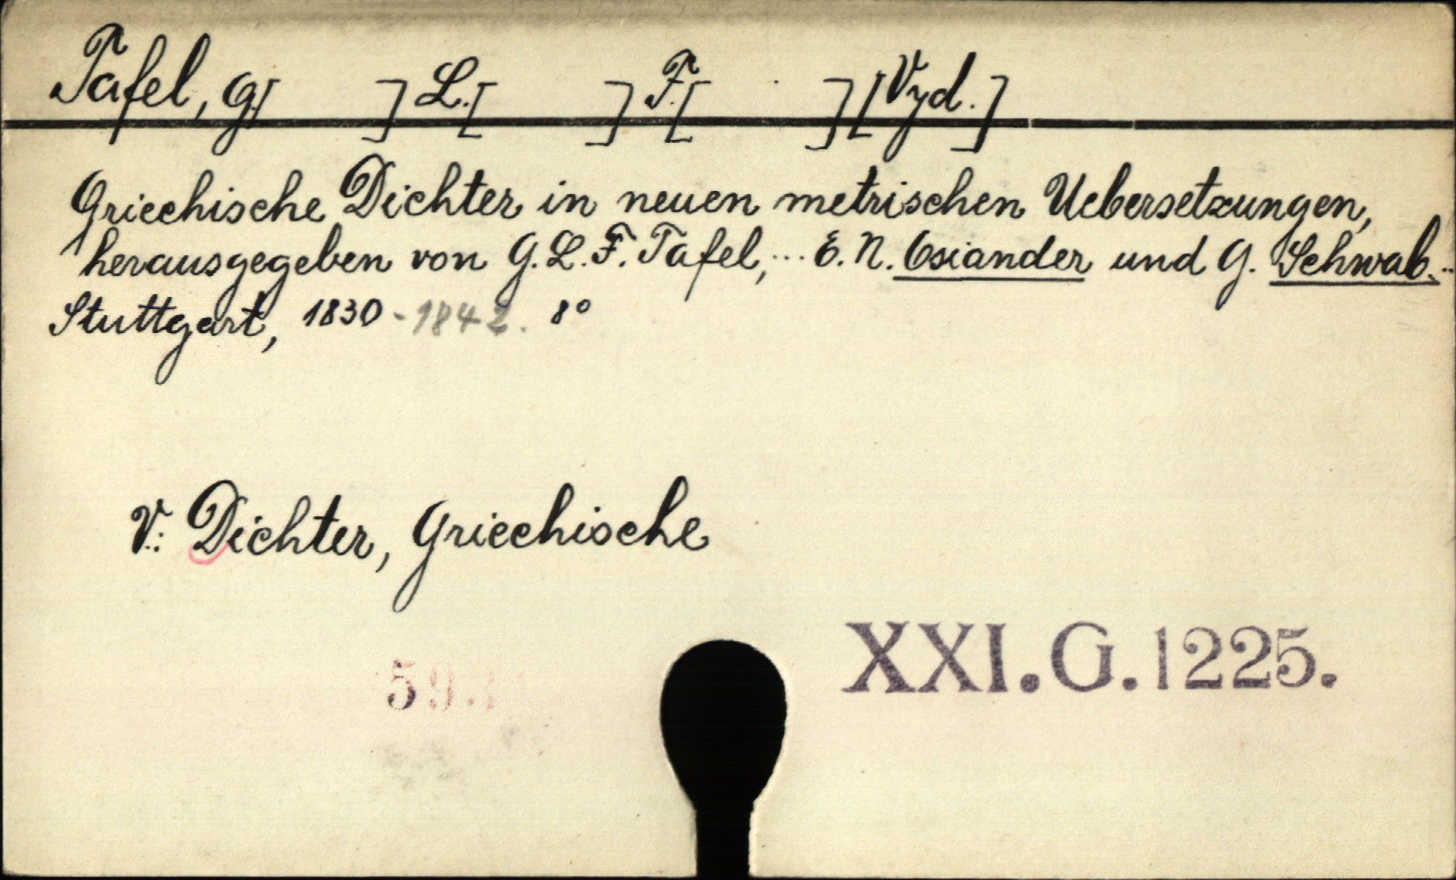 Tafel, G[ ] L.[ ] F.[ ] [Vyd.]
Griechische Dichter in neuen metrischen Uebersetzungen,
herausgegeben von G. L. F. Tafel,... E. N. Osiander und G. Schwab...
Stuttgart, 1830-1842. 8°
V.: Dichter, Griechische
59.
XXI.G.1225.